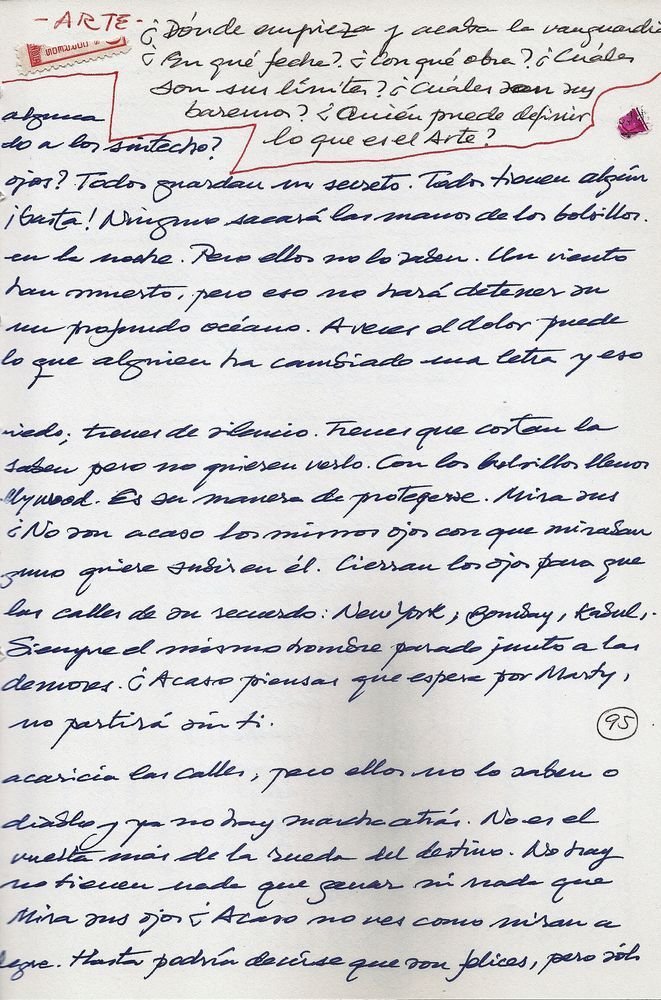 -ARTE-
¿Dónde empieza y acaba la vanguardia
¿En qué fecha? ¿Con qué obra? ¿Cuáles
son sus límites? ¿Cuáles son sus
baremos? ¿Quién puede definir
lo que es el Arte?
alguna
do a los sintecho?
ojos? Todos guardan un secreto. Todos tienen algún
¡Basta! Ninguno sacará las manos de los bolsillos.
en la noche. Pero ellos no lo saben. Un viento
han muerto, pero eso no hará detener su
un profundo océano. A veces el dolor puede
lo que alguien ha cambiado una letra y eso
miedo; trenes de silencio. Trenes que cortan la
saben pero no quieren verlo. Con los bolsillos llenos
llywood. Es su manera de protegerse. Mira sus
¿No son acaso los mismos ojos con que miraban
guno quiere subir en él. Cierran los ojos para que
las calles de su recuerdo: New York, Bombay, Kabul,.
Siempre el mismo hombre parado junto a las
demores. ¿Acaso piensas que espera por Marty,
no partirá sin ti.
95
acaricia las calles, pero ellos no lo saben o
diablo y ya no hay marcha atrás. No es el
vuelta más de la rueda del destino. No hay
no tienen nada que ganar ni nada que
Mira sus ojos ¿Acaso no ves como miran a
legre. Hasta podría decirse que son felices, pero sólo